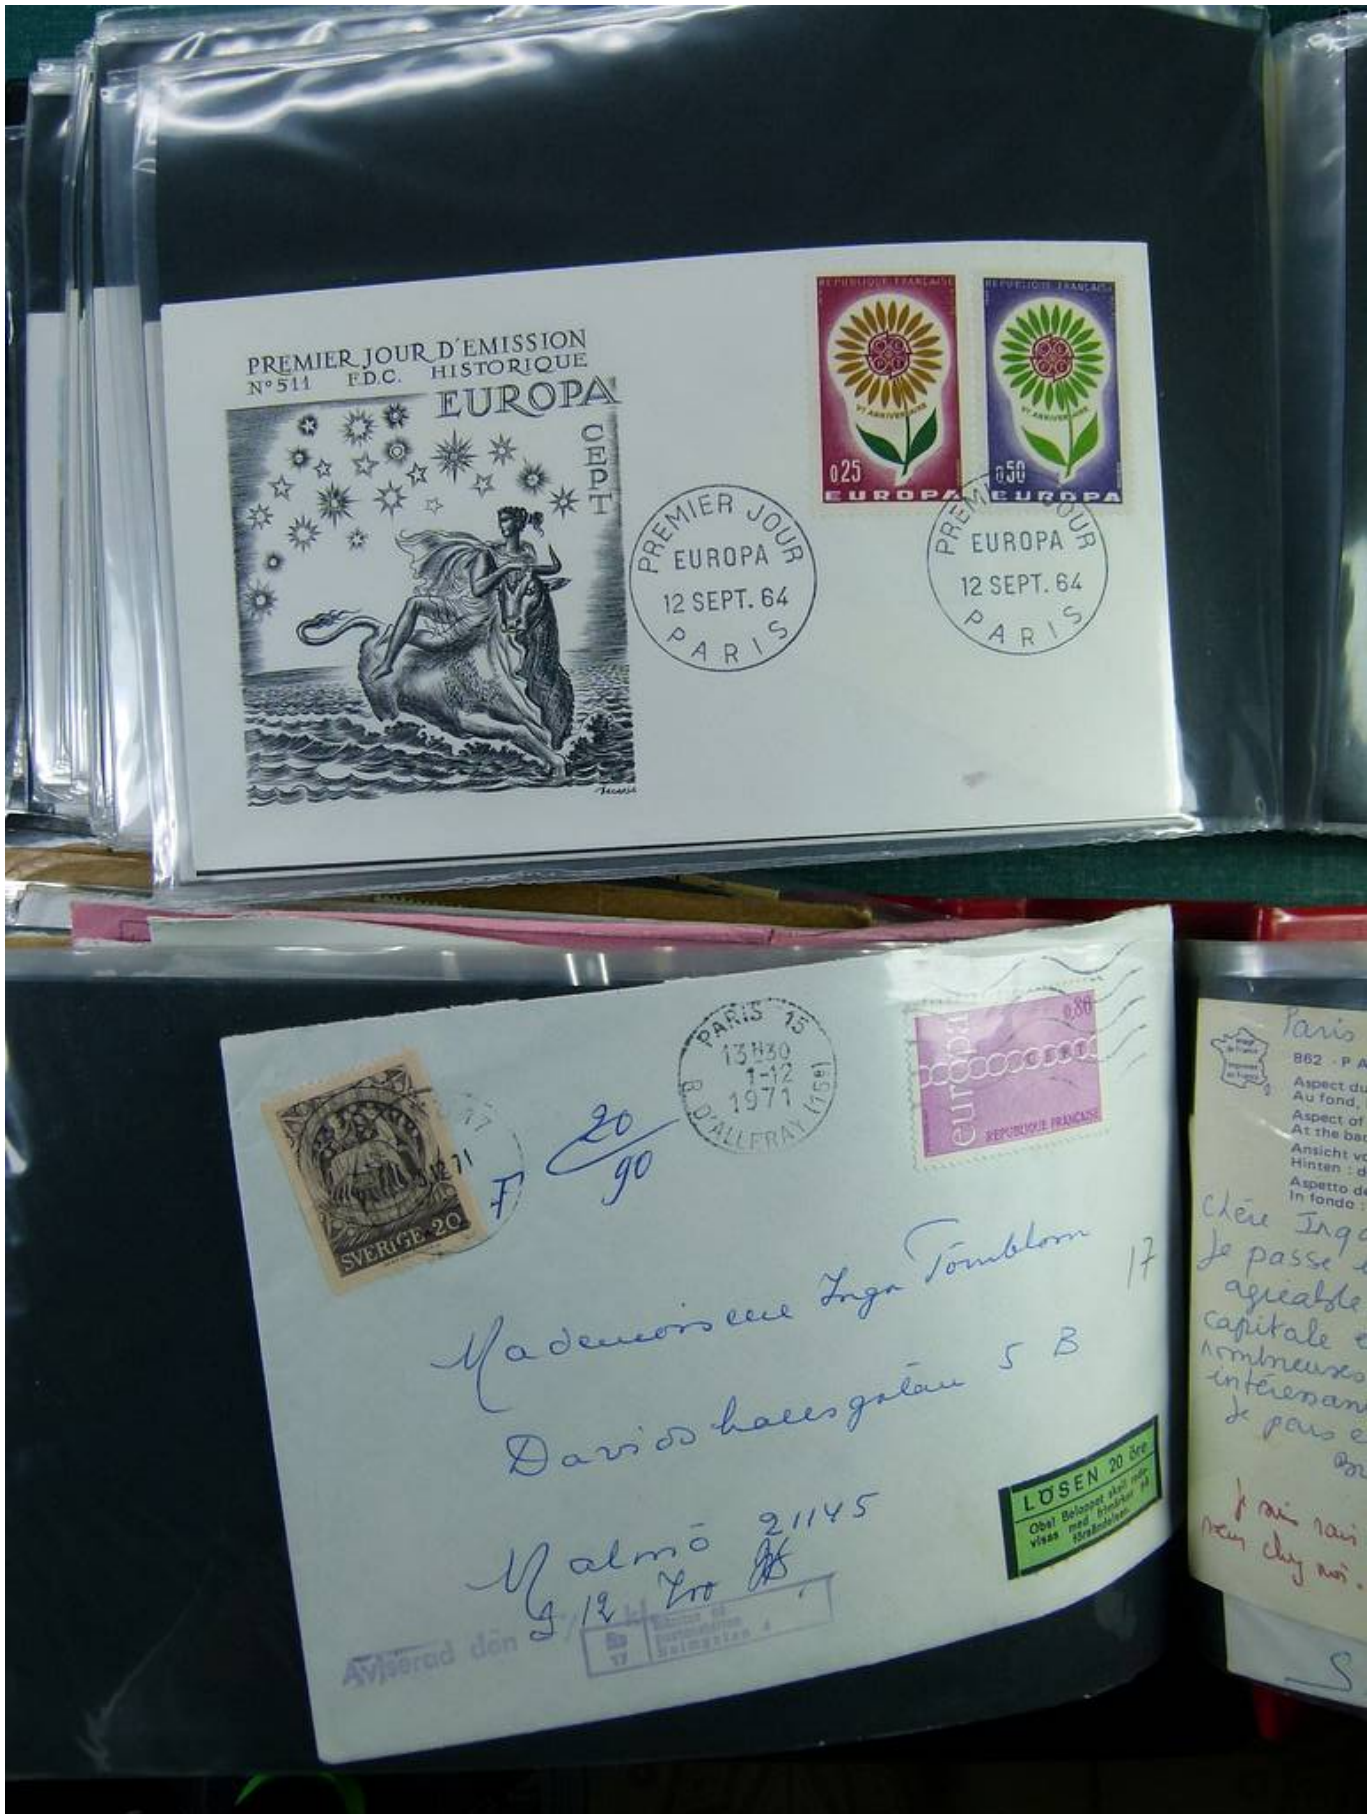 PREMIER JOUR D'EMISSION
N° 511 F.D.C. HISTORIQUE
EUROPA
CEPT
REPUBLIQUE FRANÇAISE
Vᵉ ANNIVERSAIRE
0,25
EUROPA
REPUBLIQUE FRANÇAISE
Vᵉ ANNIVERSAIRE
0,50
EUROPA
PREMIER JOUR
EUROPA
12 SEPT. 64
PARIS
PREMIER JOUR
EUROPA
12 SEPT. 64
PARIS
PARIS 15
13H30
1-12
1971
R. D'ALLERAY (15e)
0,80
europa
CEPT
REPUBLIQUE FRANÇAISE
SVERIGE 20
12.71
T
20
90
17
Mademoiselle Inga Törnblom
Davidshallsgatan 5 B
Malmö 21145
LÖSEN 20 öre
Obs! Beloppet skall redo-
visas med frimärken på
försändelsen.
Aviserad den
Paris
862 - PA
Aspect du
Au fond,
Aspect of
At the bac
Ansicht vo
Hinten : d
Aspetto de
In fondo :
Chère Inga
Je passe
agréable
capitale
nombreuses
intéressan
Je pars
S